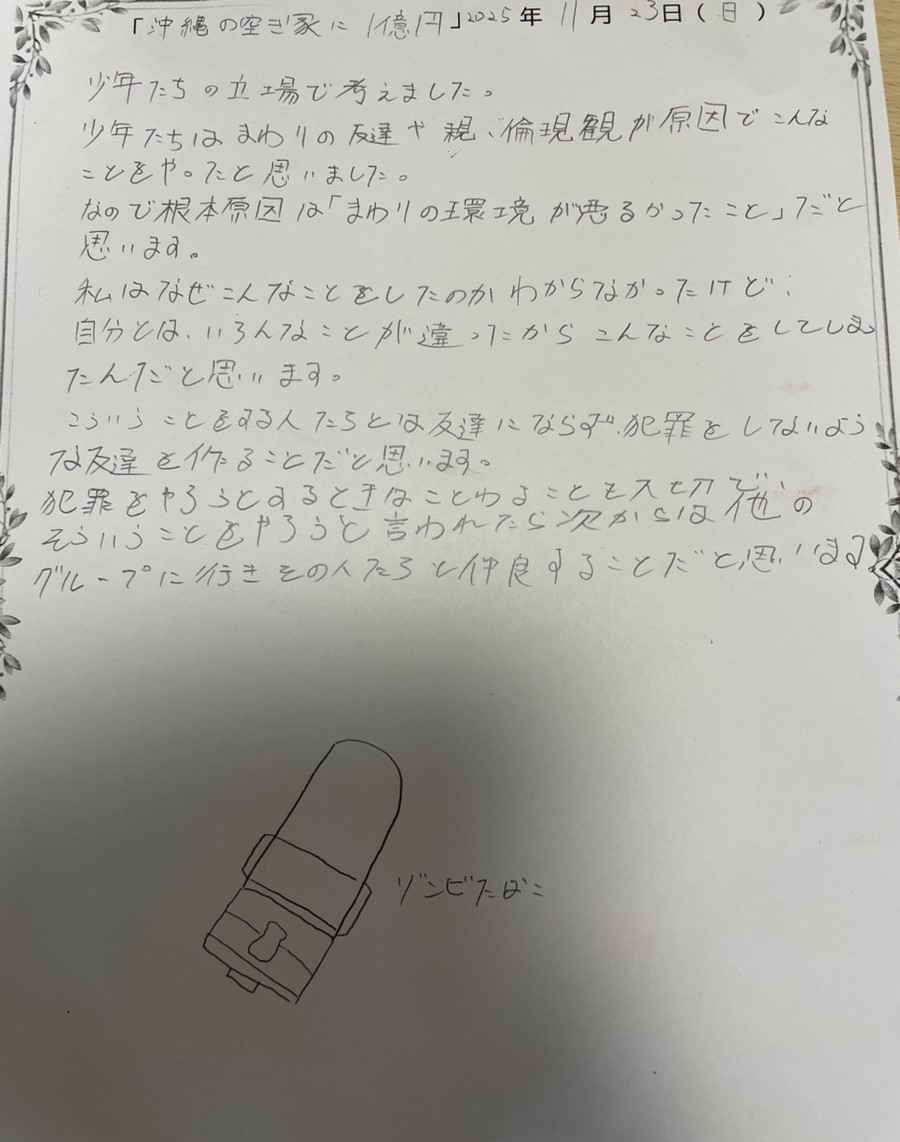 「沖縄の空き家に1億円」2025年11月23日(日)
少年たちの立場で考えました。
少年たちはまわりの友達や親、倫現観が原因でこんな
ことをやったと思いました。
なので根本原因は「まわりの環境が悪るかったこと」だと
思います。
私はなぜこんなことをしたのかわからなかったけど、
自分とは、いろんなことが違ったからこんなことをしてしまっ
たんだと思います。
こういうことをする人たちとは友達にならず、犯罪をしないよう
な友達を作ることだと思います。
犯罪をやろうとするときはことわることも大切で、他の
そういうことをやろうと言われたら次からは
グループに行きその人たちと仲良することだと思います。
ゾンビたばこ